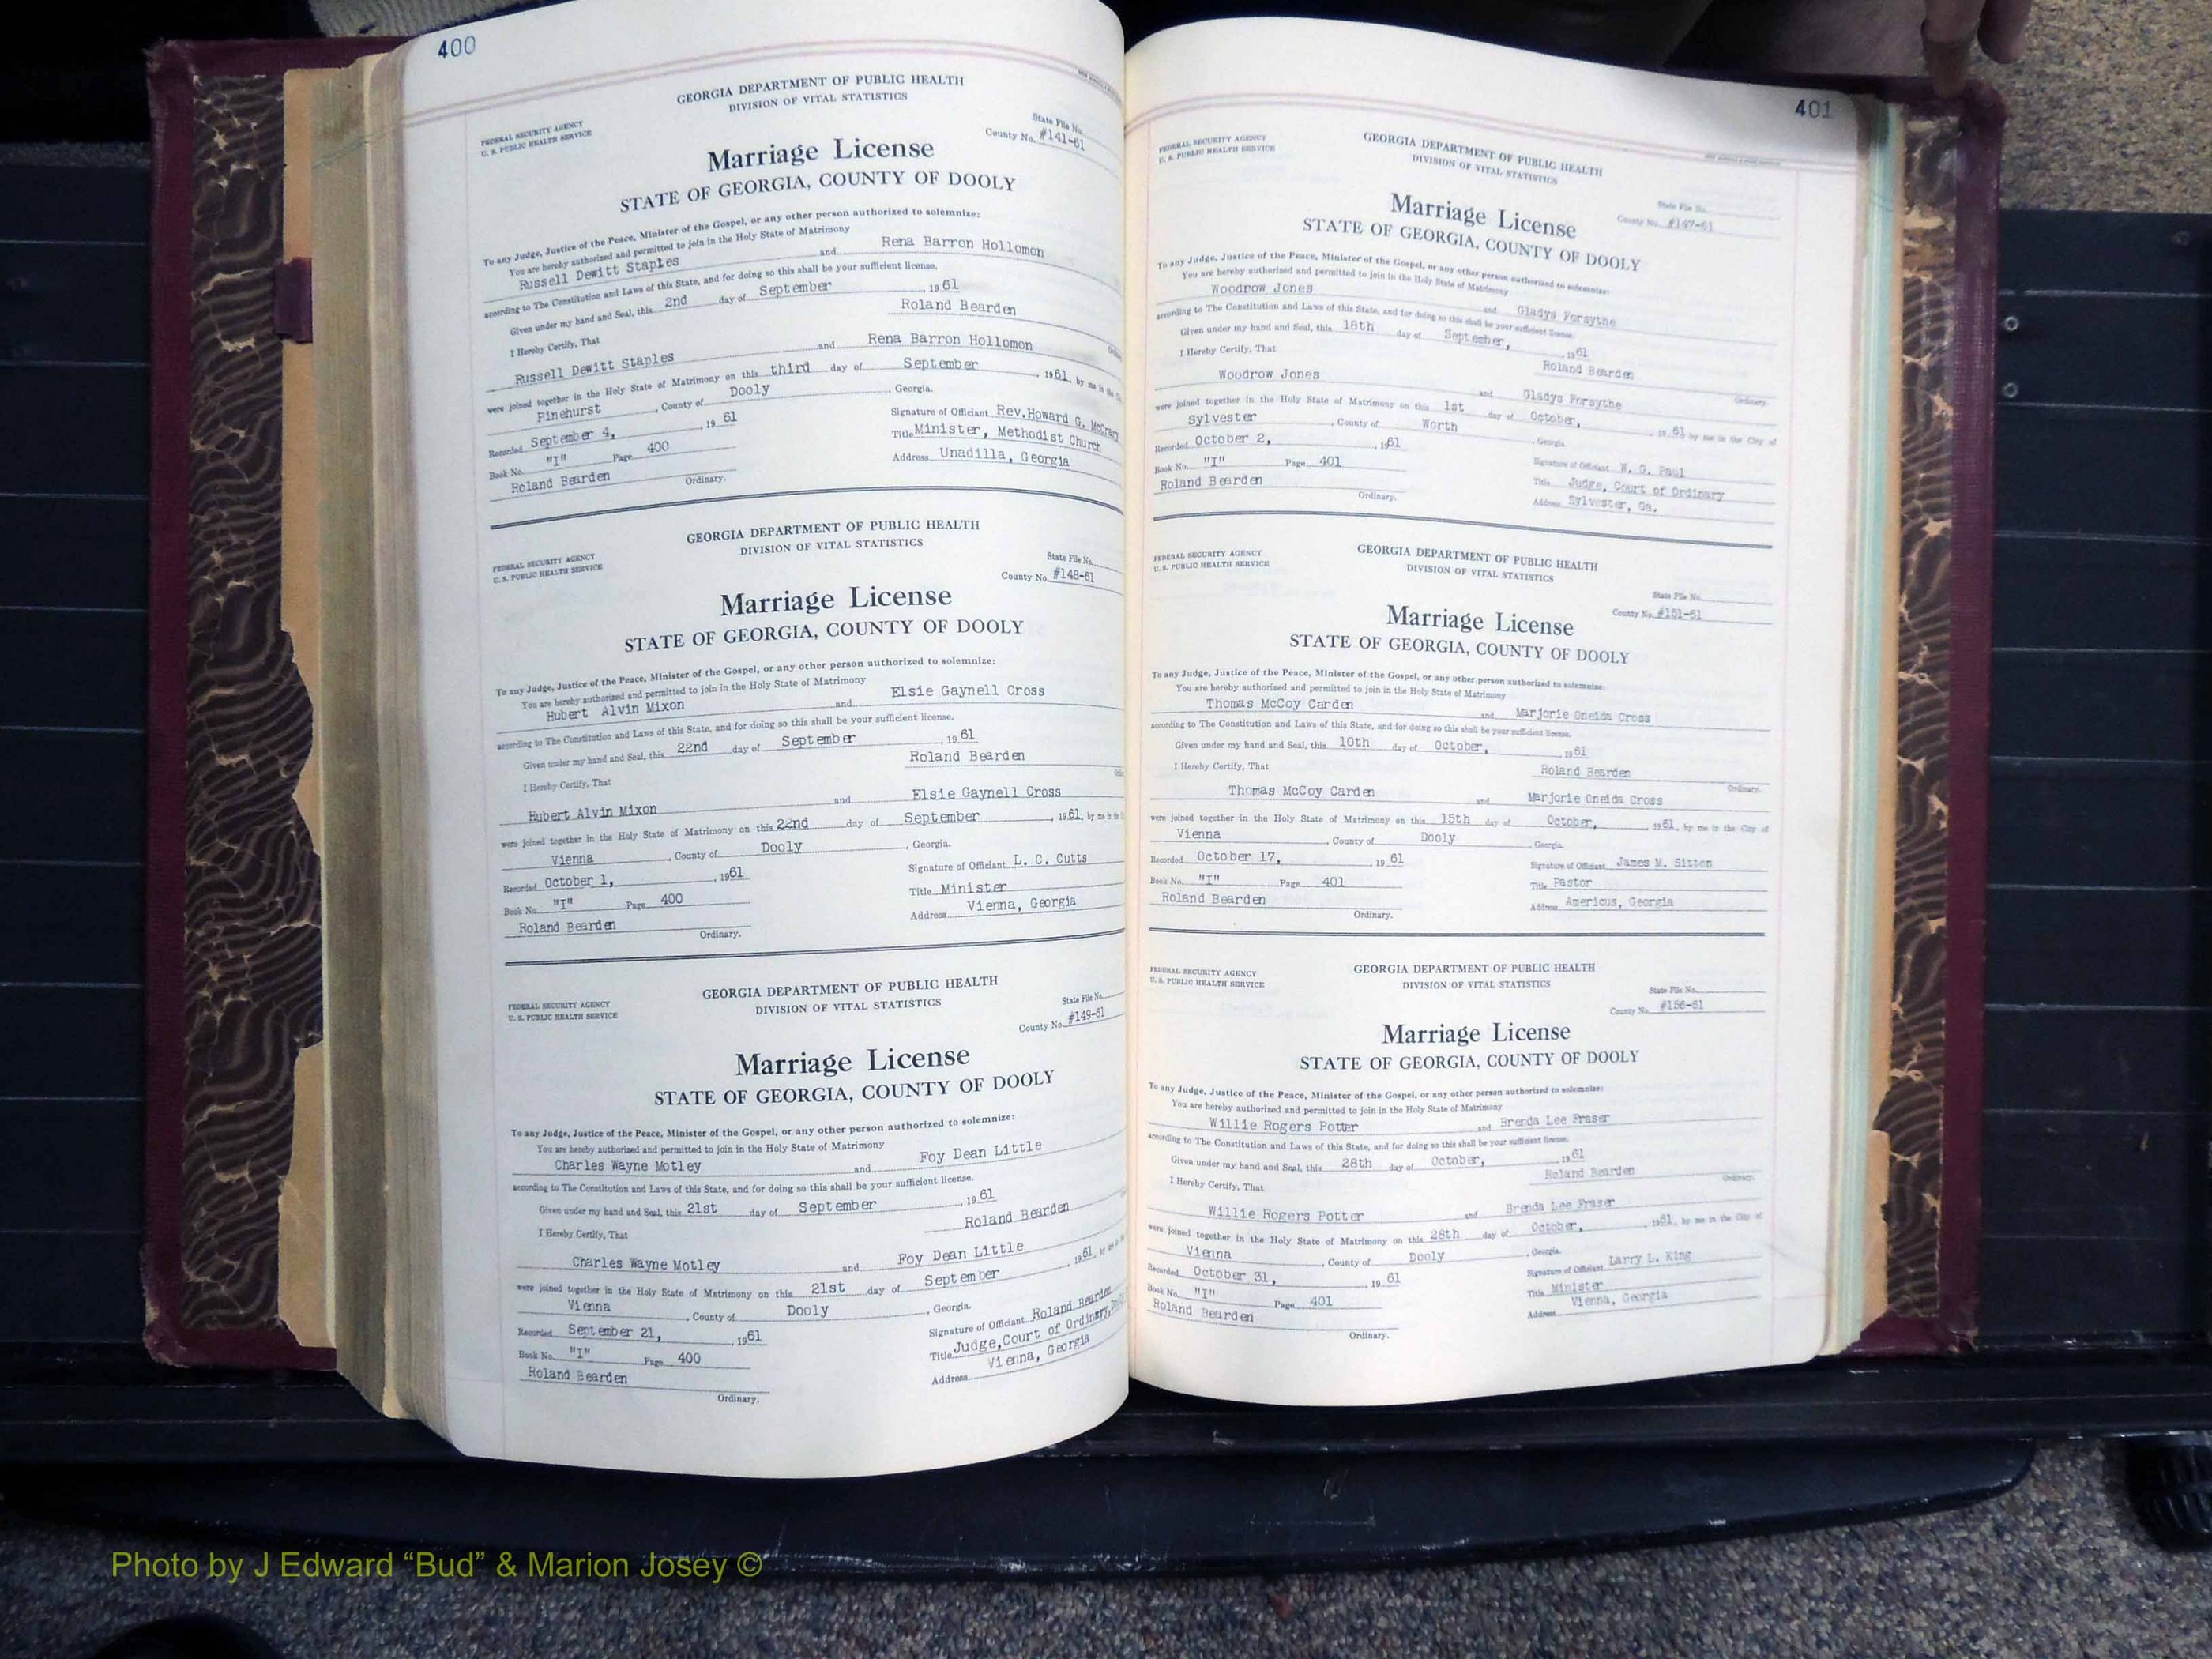 400
GEORGIA DEPARTMENT OF PUBLIC HEALTH
DIVISION OF VITAL STATISTICS
FEDERAL SECURITY AGENCY
U. S. PUBLIC HEALTH SERVICE
State File No.
County No. #141-61
Marriage License
STATE OF GEORGIA, COUNTY OF DOOLY
To any Judge, Justice of the Peace, Minister of the Gospel, or any other person authorized to solemnize:
You are hereby authorized and permitted to join in the Holy State of Matrimony
Russell Dewitt Staples and Rena Barron Hollomon
according to The Constitution and Laws of this State, and for doing so this shall be your sufficient license.
Given under my hand and Seal, this 2nd day of September, 1961
Roland Bearden
I Hereby Certify, That
Russell Dewitt Staples and Rena Barron Hollomon
were joined together in the Holy State of Matrimony on this third day of September, 1961, by me in the
Pinehurst, County of Dooly, Georgia.
Recorded September 4, 1961
Signature of Officiant Rev.Howard G. McCrary
Book No. "I" Page 400
Title Minister, Methodist Church
Roland Bearden
Address Unadilla, Georgia
Ordinary.
GEORGIA DEPARTMENT OF PUBLIC HEALTH
DIVISION OF VITAL STATISTICS
FEDERAL SECURITY AGENCY
U. S. PUBLIC HEALTH SERVICE
State File No.
County No. #148-61
Marriage License
STATE OF GEORGIA, COUNTY OF DOOLY
To any Judge, Justice of the Peace, Minister of the Gospel, or any other person authorized to solemnize:
You are hereby authorized and permitted to join in the Holy State of Matrimony
Hubert Alvin Mixon and Elsie Gaynell Cross
according to The Constitution and Laws of this State, and for doing so this shall be your sufficient license.
Given under my hand and Seal, this 22nd day of September, 1961
Roland Bearden
I Hereby Certify, That
Hubert Alvin Mixon and Elsie Gaynell Cross
were joined together in the Holy State of Matrimony on this 22nd day of September, 1961, by me in the
Vienna, County of Dooly, Georgia.
Recorded October 1, 1961
Signature of Officiant L. C. Cutts
Book No. "I" Page 400
Title Minister
Roland Bearden
Address Vienna, Georgia
Ordinary.
GEORGIA DEPARTMENT OF PUBLIC HEALTH
DIVISION OF VITAL STATISTICS
FEDERAL SECURITY AGENCY
U. S. PUBLIC HEALTH SERVICE
State File No.
County No. #149-61
Marriage License
STATE OF GEORGIA, COUNTY OF DOOLY
To any Judge, Justice of the Peace, Minister of the Gospel, or any other person authorized to solemnize:
You are hereby authorized and permitted to join in the Holy State of Matrimony
Charles Wayne Motley and Foy Dean Little
according to The Constitution and Laws of this State, and for doing so this shall be your sufficient license.
Given under my hand and Seal, this 21st day of September, 1961
Roland Bearden
I Hereby Certify, That
Charles Wayne Motley and Foy Dean Little
were joined together in the Holy State of Matrimony on this 21st day of September, 1961, by me in the
Vienna, County of Dooly, Georgia.
Recorded September 21, 1961
Signature of Officiant Roland Bearden
Book No. "I" Page 400
Title Judge,Court of Ordinary,
Roland Bearden
Address Vienna, Georgia
Ordinary.
401
FEDERAL SECURITY AGENCY
U. S. PUBLIC HEALTH SERVICE
GEORGIA DEPARTMENT OF PUBLIC HEALTH
DIVISION OF VITAL STATISTICS
State File No.
County No. #147-61
Marriage License
STATE OF GEORGIA, COUNTY OF DOOLY
To any Judge, Justice of the Peace, Minister of the Gospel, or any other person authorized to solemnize:
You are hereby authorized and permitted to join in the Holy State of Matrimony
Woodrow Jones and Gladys Forsythe
according to The Constitution and Laws of this State, and for doing so this shall be your sufficient license.
Given under my hand and Seal, this 18th day of September, 1961
Roland Bearden
I Hereby Certify, That
Ordinary.
Woodrow Jones and Gladys Forsythe
were joined together in the Holy State of Matrimony on this 1st day of October, 1961 by me in the City of
Sylvester, County of Worth, Georgia.
Recorded October 2, 1961
Signature of Officiant W. G. Paul
Book No. "I" Page 401
Title Judge, Court of Ordinary
Roland Bearden
Address Sylvester, Ga.
Ordinary.
FEDERAL SECURITY AGENCY
U. S. PUBLIC HEALTH SERVICE
GEORGIA DEPARTMENT OF PUBLIC HEALTH
DIVISION OF VITAL STATISTICS
State File No.
County No. #151-61
Marriage License
STATE OF GEORGIA, COUNTY OF DOOLY
To any Judge, Justice of the Peace, Minister of the Gospel, or any other person authorized to solemnize:
You are hereby authorized and permitted to join in the Holy State of Matrimony
Thomas McCoy Carden and Marjorie Oneida Cross
according to The Constitution and Laws of this State, and for doing so this shall be your sufficient license.
Given under my hand and Seal, this 10th day of October, 1961
I Hereby Certify, That
Roland Bearden
Ordinary.
Thomas McCoy Carden and Marjorie Oneida Cross
were joined together in the Holy State of Matrimony on this 15th day of October, 1961, by me in the City of
Vienna, County of Dooly, Georgia.
Recorded October 17, 1961
Signature of Officiant James M. Sitton
Book No. "I" Page 401
Title Pastor
Roland Bearden
Address Americus, Georgia
Ordinary.
FEDERAL SECURITY AGENCY
U. S. PUBLIC HEALTH SERVICE
GEORGIA DEPARTMENT OF PUBLIC HEALTH
DIVISION OF VITAL STATISTICS
State File No.
County No. #156-61
Marriage License
STATE OF GEORGIA, COUNTY OF DOOLY
To any Judge, Justice of the Peace, Minister of the Gospel, or any other person authorized to solemnize:
You are hereby authorized and permitted to join in the Holy State of Matrimony
Willie Rogers Potter and Brenda Lee Fraser
according to The Constitution and Laws of this State, and for doing so this shall be your sufficient license.
Given under my hand and Seal, this 28th day of October, 1961
Roland Bearden
I Hereby Certify, That
Ordinary.
Willie Rogers Potter and Brenda Lee Fraser
were joined together in the Holy State of Matrimony on this 28th day of October, 1961, by me in the City of
Vienna, County of Dooly, Georgia.
Recorded October 31, 1961
Signature of Officiant Larry L. King
Book No. "I" Page 401
Title Minister
Roland Bearden
Address Vienna, Georgia
Ordinary.
Photo by J Edward “Bud” & Marion Josey ©